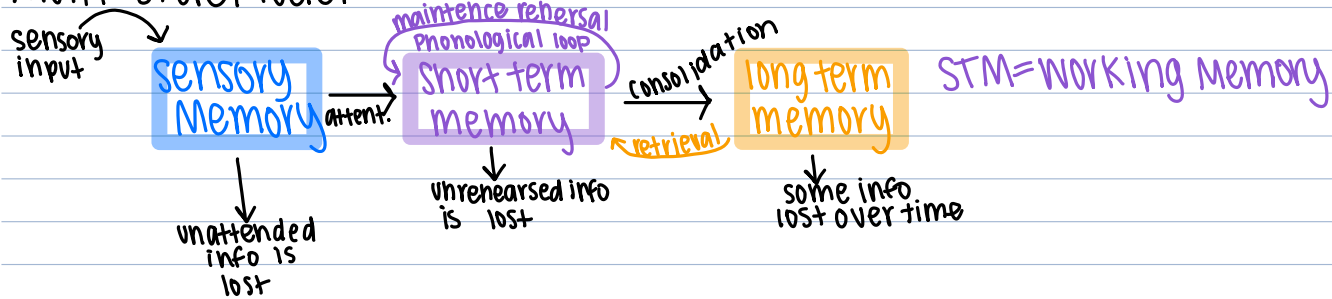 sensory
input
sensory
Memory
attent.
maintence rehersal
Phonological loop
short term
memory
consolidation
retrieval
long term
memory
STM=Working Memory
unattended
info is
lost
unrehearsed info
is lost
some info
lost over time